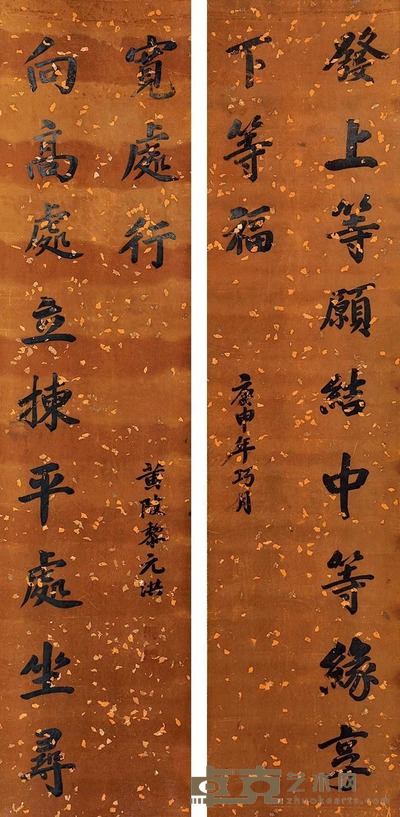 發上等願結中等緣享
下等福
庚申年巧月
向高處立揀平處坐尋
寬處行
黄陂黎元洪
卓克艺术网
www.zhuokearts.com